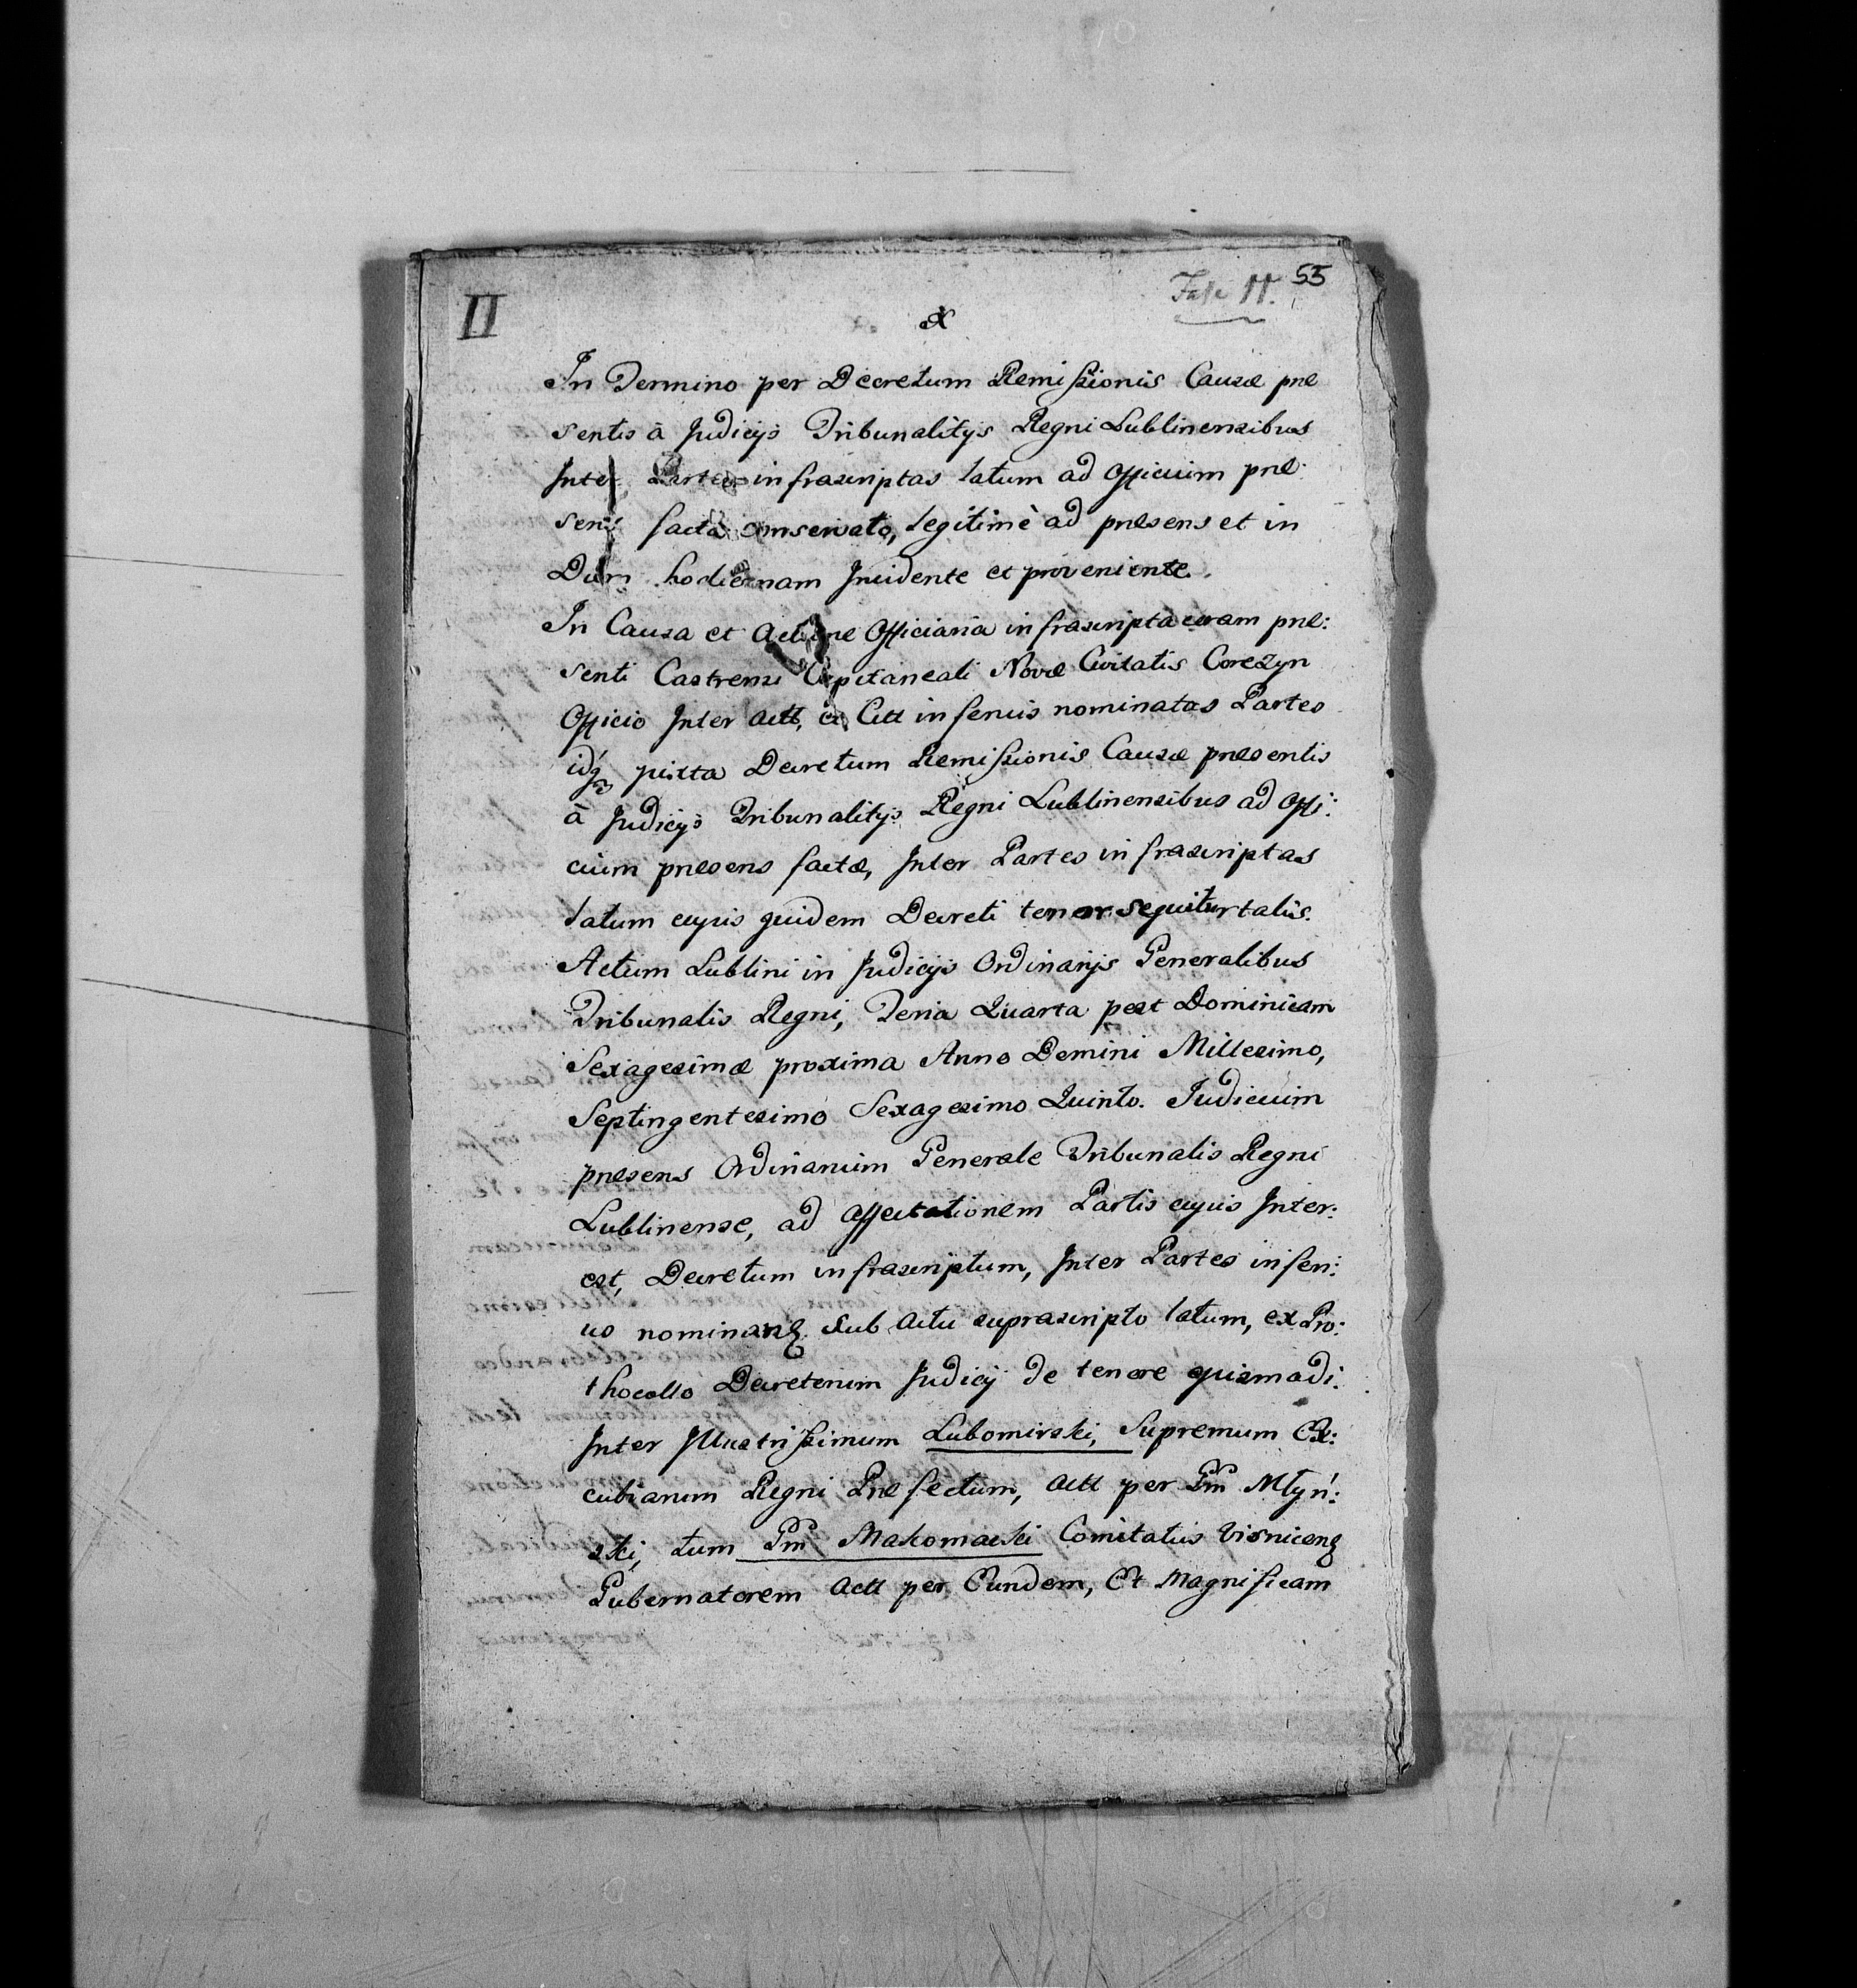 II
Fasc II. 55
In Termino per Decretum Remissionis Causæ præ
sentis à Judicijs Tribunalitijs Regni Lublinensibus
Inter Partes infrascriptas latum ad Officium præ:
sens facta conservato, legitimè ad præsens et in
Diem hodiernam Incidente et proveniente.
In Causa et Actione Officiaria infrascripta coram præ:
senti Castrensi Capitaneali Novæ Civitatis Corczyn
Officio Inter Act, et Citt inferius nominatas Partes
idq3 juxta Decretum Remissionis Causæ præsentis
à Judicijs Tribunalitijs Regni Lublinensibus ad Offi:
cium præsens factæ, Inter Partes infrascriptas
latum cujus quidem Decreti tenor sequitur talis.
Actum Lublini in Judicijs Ordinarijs Generalibus
Tribunalis Regni, Feria Quarta post Dominicam
Sexagesimæ proxima Anno Domini Millesimo,
Septingentesimo Sexagesimo Quinto. Judicium
præsens Ordinarium Generale Tribunalis Regni
Lublinense, ad affectationem Partis cujus Inter:
est, Decretum infrascriptum, Inter Partes inferi:
us nominatas sub Actu suprascripto latum, ex Pro:
thocollo Decretorum Judicij de tenore ejusmodi.
Inter Illustrissimum Lubomirski, Supremum Ex:
cubiarum Regni Præfectum, Act per Gm Młyń:
ski, tum Gm Makomaski Comitatus Visnicens
Gubernatorem Act per Eundem, Et Magnificam